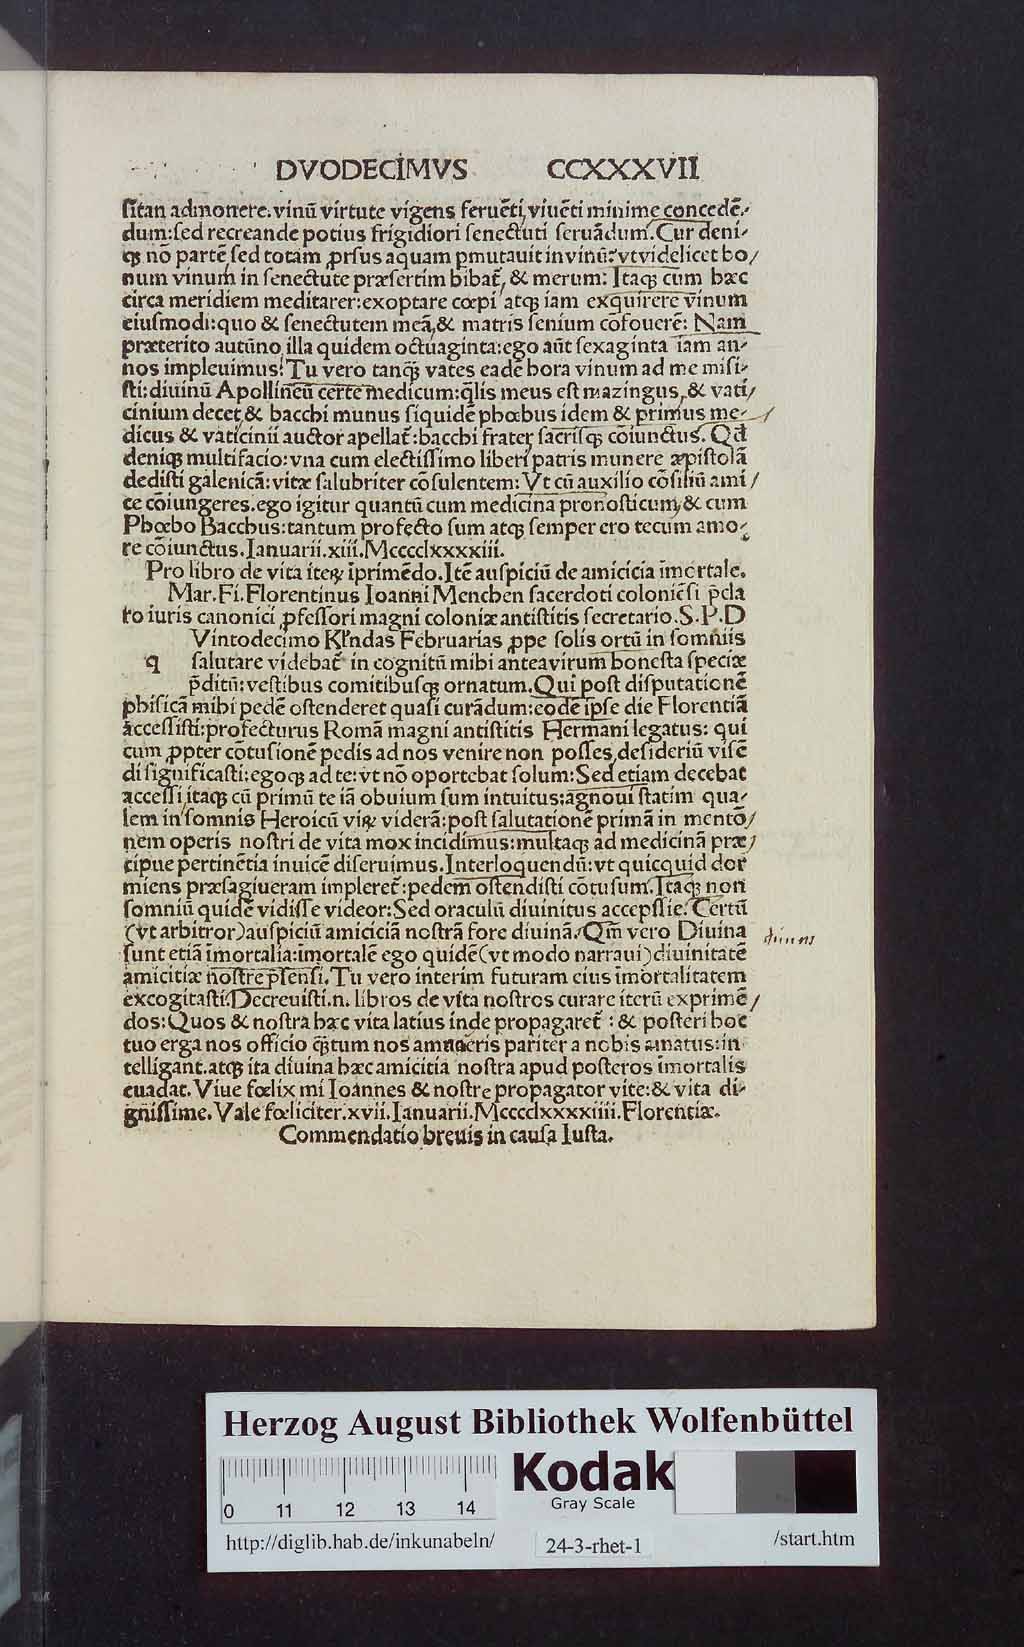 DVODECIMVS CCXXXVII
ſitan admonere. vinū virtute vigens feruēti, viuēti minime concedē-
dum: ſed recreande potius frigidiori ſenectuti ſeruādum. Cur deni-
qꝫ nō partē ſed totam ꝓrſus aquam ꝑmutauit in vinū: vt videlicet bo/
num vinum in ſenectute præſertim bibat᷑, & merum: Itaqꝫ cum hæc
circa meridiem meditarer: exoptare cœpi atqꝫ iam exquirere vinum
eiuſmodi: quo & ſenectutem meā, & matris ſenium cōfouerē: Nam
præterito autūno illa quidem octuaginta: ego aūt ſexaginta iam an-
nos impleuimus: Tu vero tanqꝫ̄ vates eadē hora vinum ad me miſi-
ſti: diuinū Apollinēum certe medicum: q̄lis meus eſt mazingus, & vati/
cinium decet & bacchi munus ſiquidē phœbus idem & primus me-
dicus & vaticinii auctor apellat᷑: bacchi frater, ſacriſqꝫ cōiunctus. Qd̄
deniqꝫ multifacio: vna cum electiſſimo liberi patris munere æpiſtolā
dediſti galenicā: vitæ ſalubriter cōſulentem: Vt cū auxilio cōſiliū ami/
ce cōiungeres. ego igitur quantū cum medicina pronoſticum, & cum
Phœbo Bacchus: tantum profecto ſum atqꝫ ſemper ero tecum amo-
re cōiunctus. Ianuarii. xiii. Mcccclxxxxiii.
Pro libro de vita iteꝝ īprimēdo. Itē auſpiciū de amicicia īmortale.
Mar. Fi. Florentinus Ioanni Menchen ſacerdoti coloniēſi p̄cla
ro iuris canonici ꝓfeſſori magni coloniæ antiſtitis ſecretario. S. P. D
Vintodecimo Kl'ndas Februarias ꝓpe ſolis ortū in ſomniis
q ſalutare videbat᷑ in cognitū mihi antea virum honeſta ſpeciæ
p̄ditū: veſtibus comitibuſqꝫ ornatum. Qui poſt diſputationē
phiſicā mihi pedē oſtenderet quaſi curādum: eodē ipſe die Florentiā
acceſſiſti: profecturus Romā magni antiſtitis Hermani legatus: qui
cum ꝓpter cōtuſionē pedis ad nos venire non poſſes, deſideriū viſē
di ſignificaſti: egoqꝫ ad te: vt nō oportebat ſolum: Sed etiam decebat
acceſſi, itaqꝫ cū primū te iā obuium ſum intuitus: agnoui ſtatim qua-
lem in ſomnis Heroicū viꝝ viderā: poſt ſalutationē primā in mentō/
nem operis noſtri de vita mox incidimus: multaqꝫ ad medicinā præ/
cipue pertinētia inuicē diſeruimus. Interloquendū: vt quicquid dor
miens præſagiueram impleret᷑: pedem oſtendiſti cōtuſum. Itaqꝫ non
ſomniū quidē vidiſſe videor: Sed oraculū diuinitus accepſſie. Certū
(vt arbitror) auſpiciū amiciciā noſtrā fore diuinā. Qm̄ vero Diuina
ſunt etiā īmortalia: īmortalē ego quidē (vt modo narraui) diuinitatē
amicitiæ noſtre p̄ſenſi. Tu vero interim futuram eius īmortalitatem
excogitaſti. Decreuiſti .n. libros de vita noſtros curare iterū exprimē/
dos: Quos & noſtra hæc vita latius inde propagaret᷑: & poſteri hoc
tuo erga nos officio qꝫ̄tum nos amaueris pariter a nobis amatus: in
telligant. atqꝫ ita diuina hæc amicitia noſtra apud poſteros īmortalis
euadat. Viue fœlix mi Ioannes & noſtre propagator vite: & vita di-
gniſſime. Vale fœliciter. xvii. Ianuarii. Mcccclxxxxiiii. Florentiæ.
Commendatio breuis in cauſa Iuſta.
Herzog August Bibliothek Wolfenbüttel
0 11 12 13 14
Kodak
Gray Scale
http://diglib.hab.de/inkunabeln/ 24-3-rhet-1 /start.htm